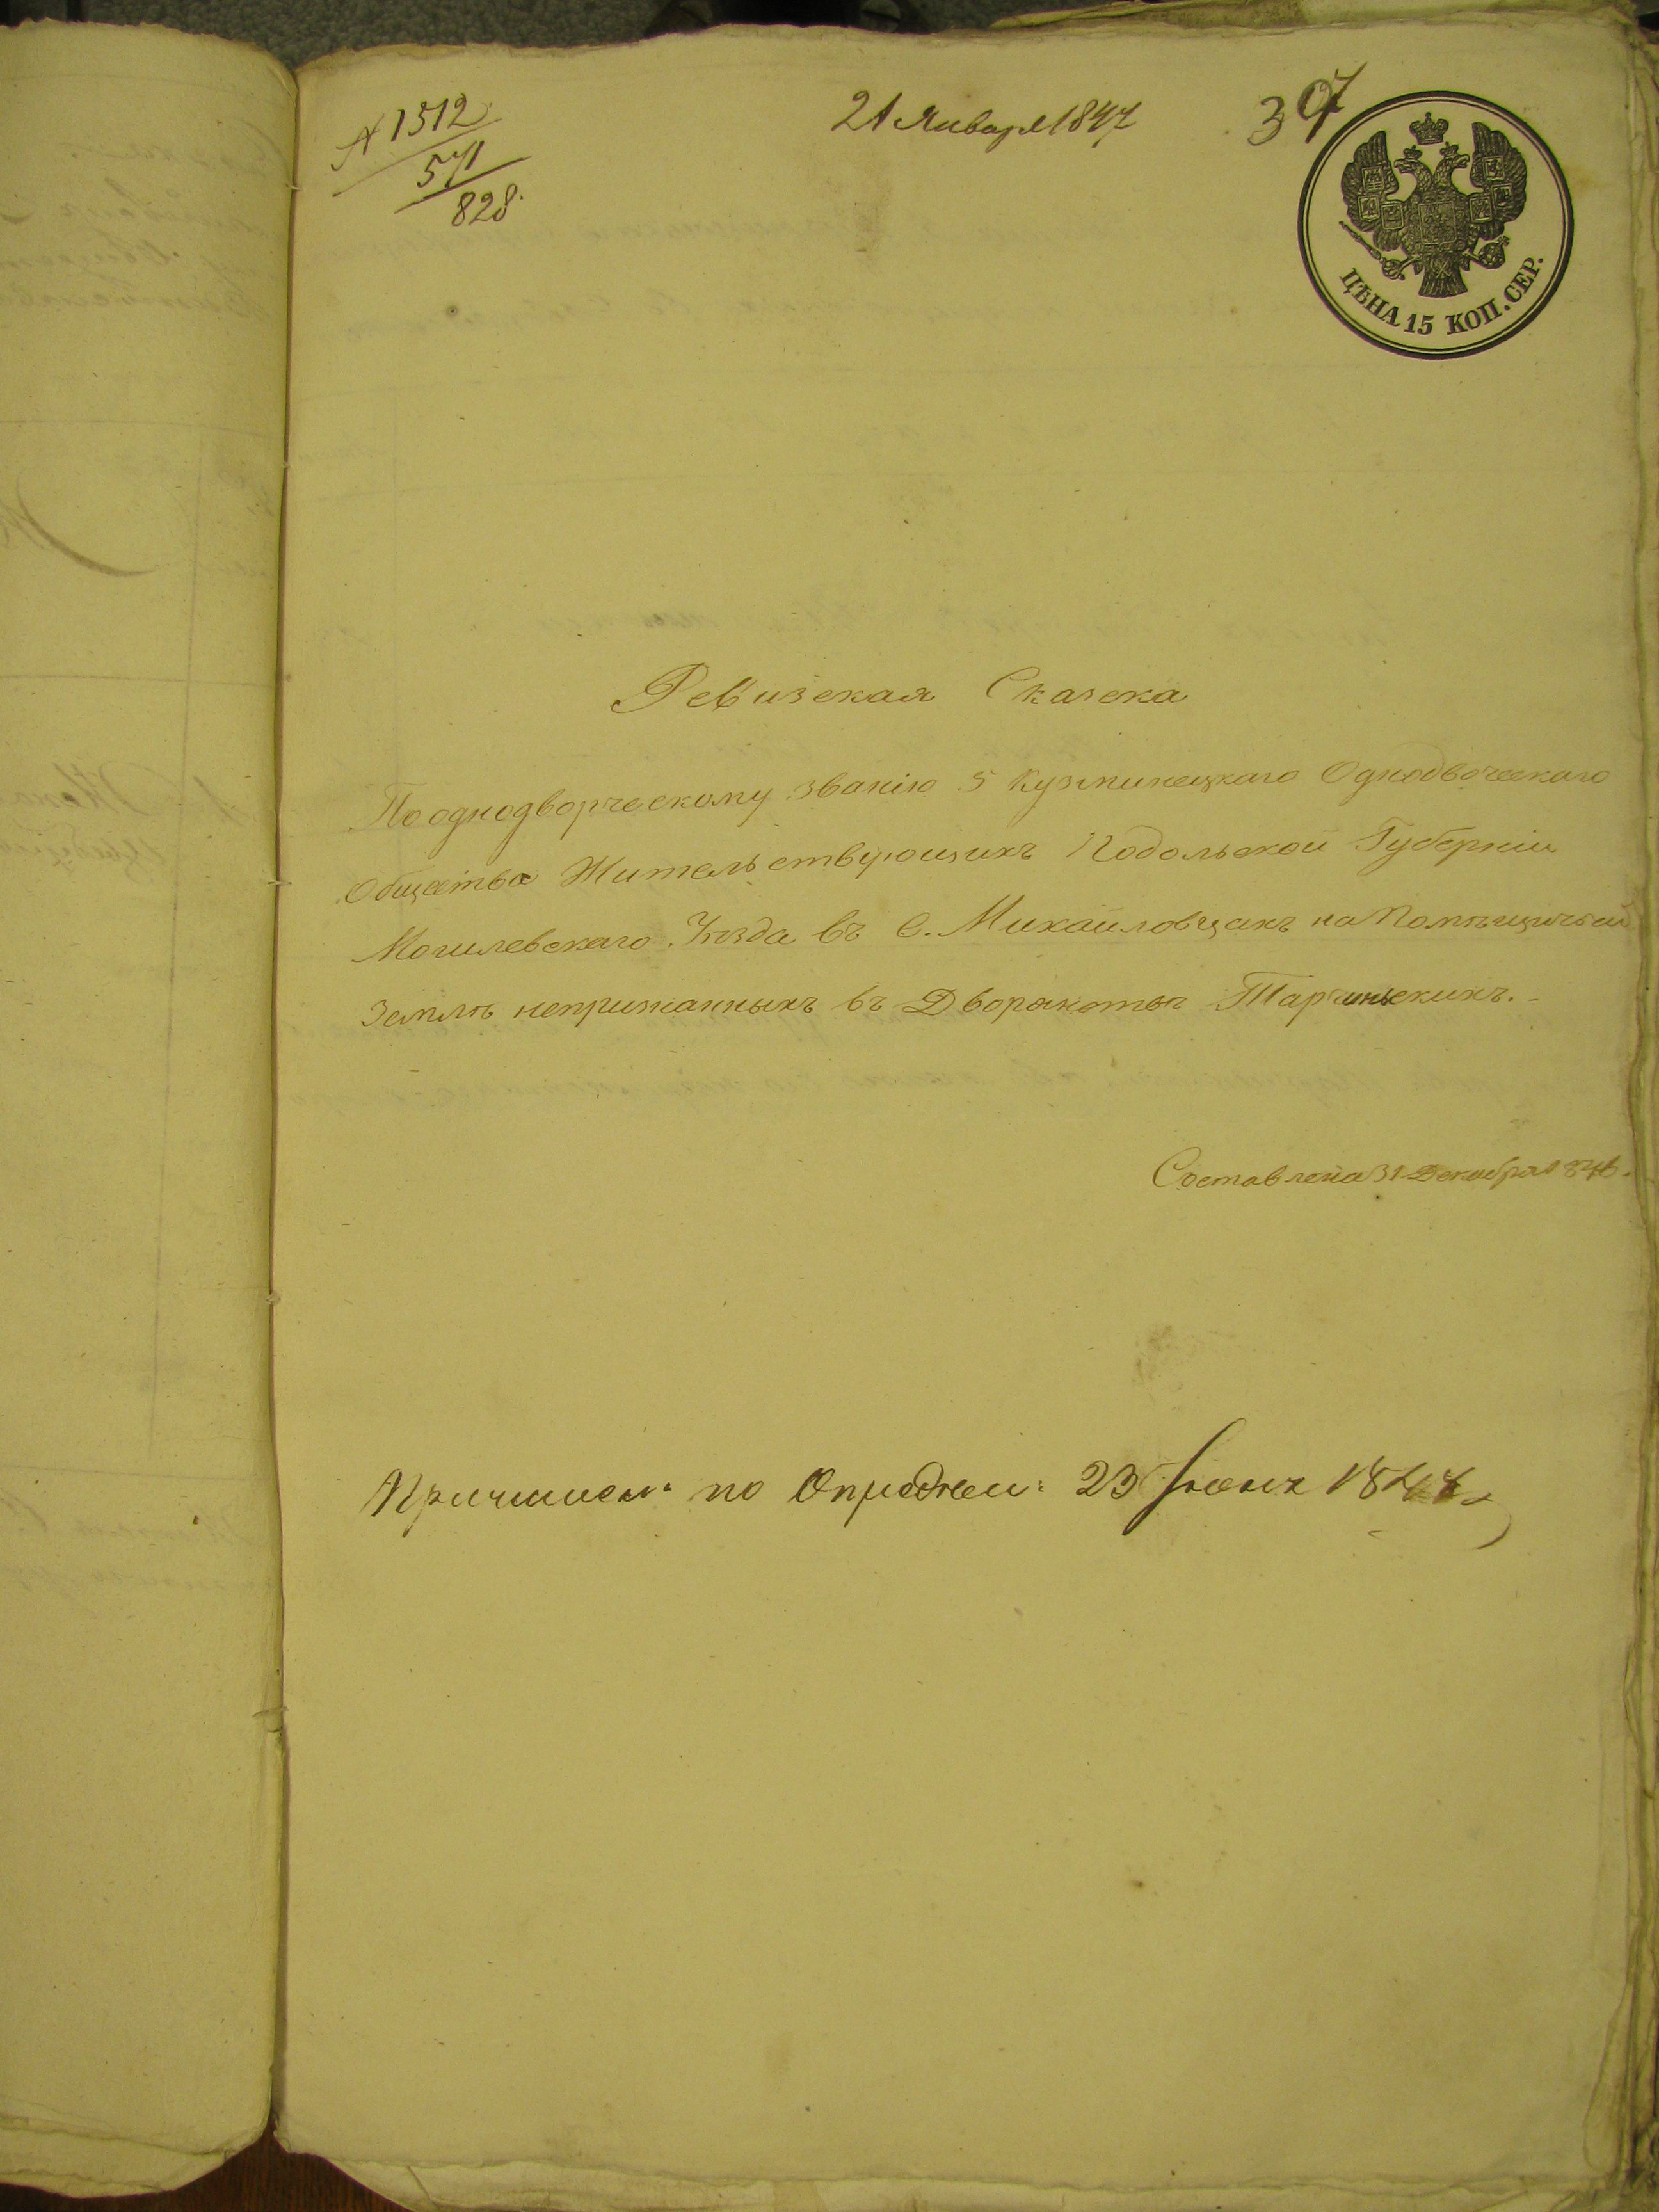 № 1512
571
828.
21 Января 1847
397
ЦѢНА 15 КОП. СЕР.
Ревизская Сказска
По однодворческому званію 5 Кузминецкаго Однодворческаго
Общества Жительствующихъ Подольской Губерніи
Могилевскаго Уѣзда въ С. Михайловцахъ на Помѣщичьей
Землѣ непризнанныхъ въ Дворянствѣ Тарчинскихъ.
Составлена 31 Декабря 1846.
по Опредѣлен: 23 1847